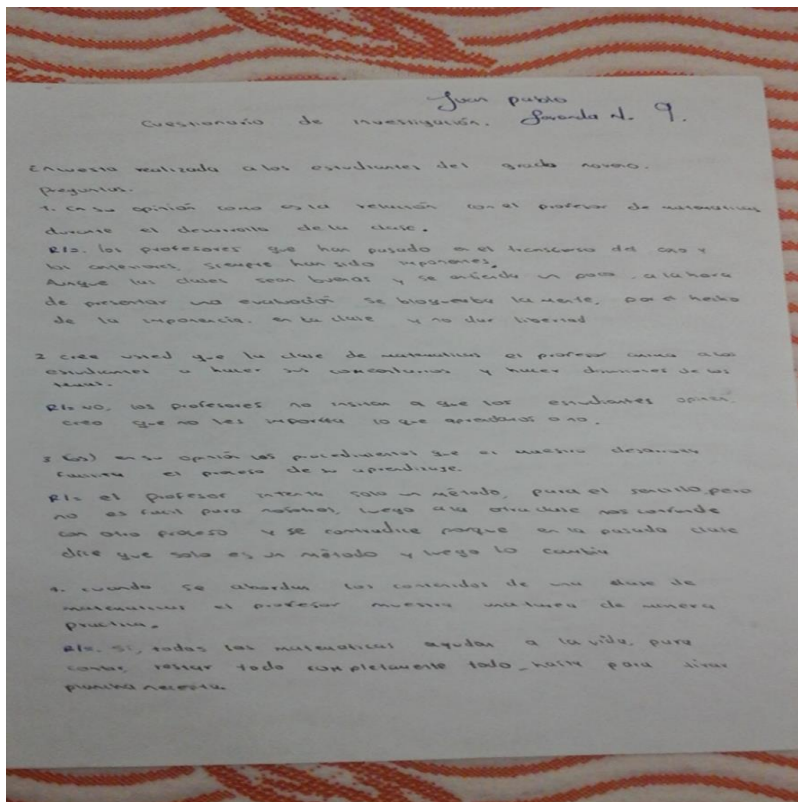 Juan pablo
Cuestionario de investigación. N. 9.
Encuesta realizada a los estudiantes del grado noveno.
preguntas.
1. en su opinión como es la relación con el profesor de matematicas
durante el desarrollo de la clase.
R/=. los profesores que han pasado en el transcurso del año y
los anteriores, siempre han sido imponentes.
Aunque las clases sean buenas y se entienda un poco, a la hora
de presentar una evaluación se bloqueaba la mente, por el hecho
de la imponencia. en la clase y no dar libertad
2 cree usted que la clase de matematicas el profesor anima a los
estudiantes a hacer sus comentarios y hacer de los
temas.
R/= NO, los profesores no insitan a que los estudiantes opinen,
creo que no les importa lo que aprendamos o no.
3 en su opinión los procedimientos que el maestro desarrolla
el proceso de su aprendizaje.
R/= el profesor intenta solo un método, para el sencillo, pero
no es facil para nosotros, luego a la otra clase nos confunde
con otro proceso y se contradice porque en la pasada clase
dice que solo es un método y luego lo cambia
4. cuando se abordan los contenidos de una clase de
matematicas el profesor muestra una tarea de manera
practica.
R/=. Si, todas las matematicas ayudan a la vida, para
contar, restar todo completamente todo, hasta para tirar
plancha necesita.